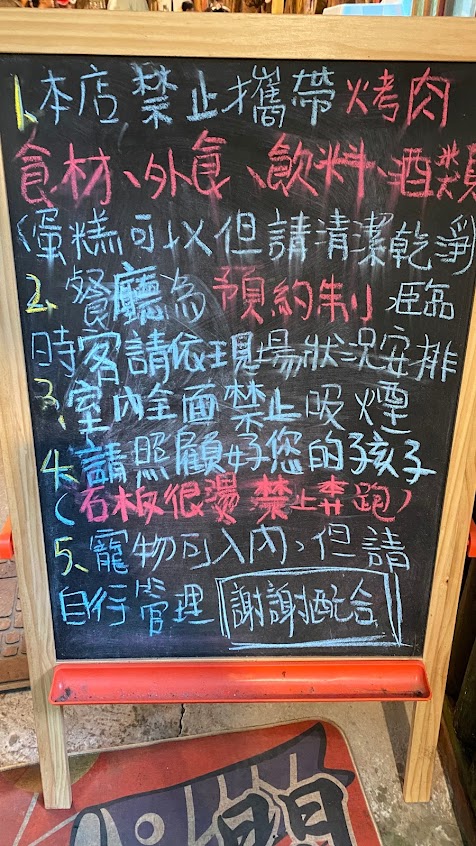 1.本店禁止攜帶烤肉
食材、外食、飲料、酒類
(蛋糕可以但請清潔乾淨)
2.餐廳為預約制,臨
時客請依現場狀況安排
3、室內全面禁止吸煙
4.請照顧好您的孩子
(石板很燙禁止奔跑)
5、寵物可入內,但請
自行管理 謝謝配合